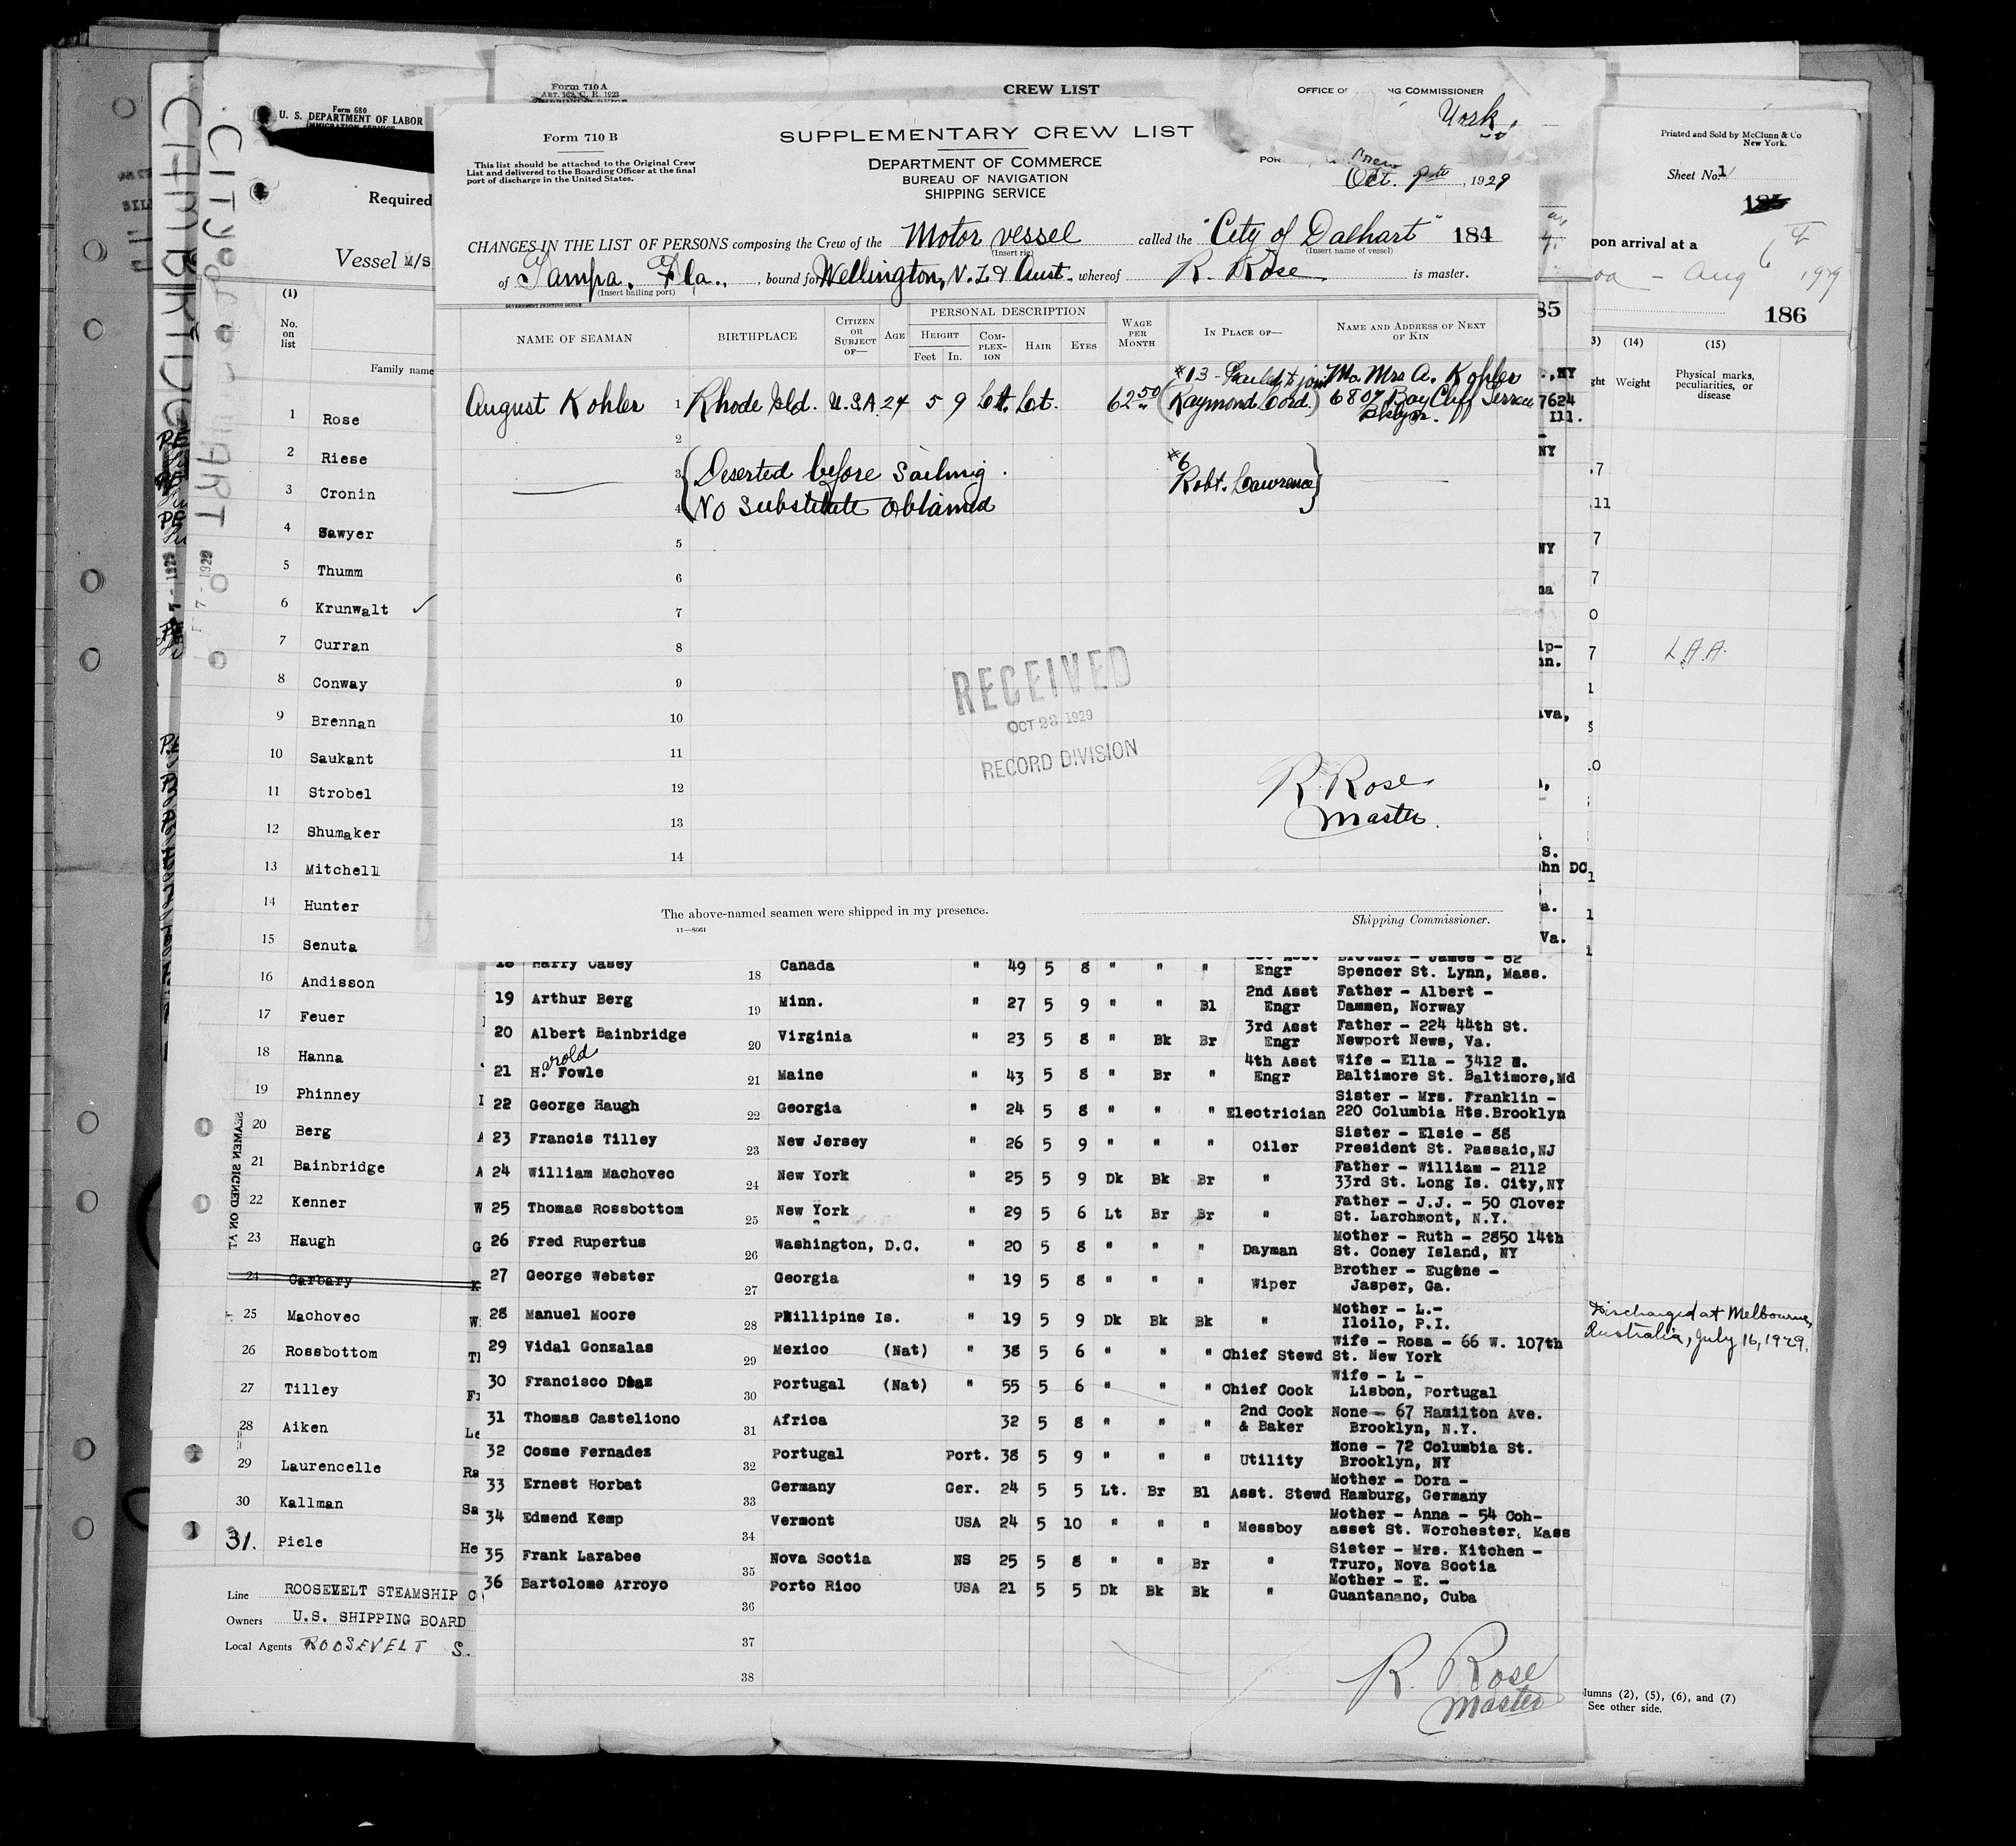 Form 710 A
ART. 162, C. R. 1923
CREW LIST
OFFICE OF NG COMMISSIONER
York,
Form 680
U. S. DEPARTMENT OF LABOR
IMMIGRATION SERVICE
Required
Vessel M/S
(1)
No. on list
Family name
CITY of DALHART
FEB 7 - 1929
Form 710 B
This list should be attached to the Original Crew
List and delivered to the Boarding Officer at the final
port of discharge in the United States.
SUPPLEMENTARY CREW LIST
DEPARTMENT OF COMMERCE
BUREAU OF NAVIGATION
SHIPPING SERVICE
Oct. , 1929
CHANGES IN THE LIST OF PERSONS composing the Crew of the Motor vessel called the "City of Dalhart" 184
(Insert rig) (Insert name of vessel)
of Tampa, Fla., , bound for Wellington, N. Z. & Aust. whereof R. Rose is master.
(Insert hailing port)
GOVERNMENT PRINTING OFFICE
NAME OF SEAMAN BIRTHPLACE CITIZEN OR SUBJECT OF— AGE PERSONAL DESCRIPTION HEIGHT Feet In. COMPLEXION HAIR EYES WAGE PER MONTH IN PLACE OF— NAME AND ADDRESS OF NEXT OF KIN
#13 - Failed to join Mo Mrs A. Kohler
August Kohler 1 Rhode Isld. U.S.A. 24 5 9 Lt. Lt. 62 50 (Raymond Cord.) 6807 Bay Cliff Terrace
Bklyn.
2
3 Deserted before Sailing. #6
4 No Substitute obtained Robt. Lawrence
5
6
7
8
9
10
11
12
13
14
RECEIVED
OCT 23 1929
RECORD DIVISION
R. Rose
Master.
The above-named seamen were shipped in my presence.
Shipping Commissioner.
11—8661
1 Rose
2 Riese
3 Cronin
4 Sawyer
5 Thumm
6 Krunwalt ✓
7 Curran
8 Conway
9 Brennan
10 Saukant
11 Strobel
12 Shumaker
13 Mitchell
14 Hunter
15 Senuta
16 Andisson
17 Feuer
18 Hanna
19 Phinney
20 Berg
21 Bainbridge
22 Kenner
23 Haugh
24 Carbary
25 Machovec
26 Rossbottom
27 Tilley
28 Aiken
29 Laurencelle
30 Kallman
31. Piele
SEAMEN SIGNED ON AT
Line ROOSEVELT STEAMSHIP C
Owners U.S. SHIPPING BOARD
Local Agents ROOSEVELT S.
18 Harry Casey 18 Canada " 49 5 8 " " " 1st Asst Engr Brother - James - 82 Spencer St. Lynn, Mass.
19 Arthur Berg 19 Minn. " 27 5 9 " " Bl 2nd Asst Engr Father - Albert - Dammen, Norway
20 Albert Bainbridge 20 Virginia " 23 5 8 " Bk Br 3rd Asst Engr Father - 224 44th St. Newport News, Va.
21 Harold Fowle 21 Maine " 43 5 8 " Br " 4th Asst Engr Wife - Ella - 3412 E. Baltimore St. Baltimore,Md
22 George Haugh 22 Georgia " 24 5 8 " " " Electrician Sister - Mrs. Franklin - 220 Columbia Hts.Brooklyn
23 Francis Tilley 23 New Jersey " 26 5 9 " " " Oiler Sister - Elsie - 88 President St. Passaic,NJ
24 William Machovec 24 New York " 25 5 9 Dk Bk Br " Father - William - 2112 33rd St. Long Is. City,NY
25 Thomas Rossbottom 25 New York " 29 5 6 Lt Br Br " Father - J.J. - 50 Clover St. Larchmont, N.Y.
26 Fred Rupertus 26 Washington, D.C. " 20 5 8 " " " Dayman Mother - Ruth - 2850 14th St. Coney Island, NY
27 George Webster 27 Georgia " 19 5 8 " " " Wiper Brother - Eugene - Jasper, Ga.
28 Manuel Moore 28 Phillipine Is. " 19 5 9 Dk Bk Bk " Mother - L.- Iloilo, P.I.
29 Vidal Gonzalas 29 Mexico (Nat) " 38 5 6 " " " Chief Stewd Wife - Rosa - 66 W. 107th St. New York
30 Francisco Diaz 30 Portugal (Nat) " 55 5 6 " " " Chief Cook Wife - L - Lisbon, Portugal
31 Thomas Casteliono 31 Africa 32 5 8 " " " 2nd Cook & Baker None - 67 Hamilton Ave. Brooklyn, N.Y.
32 Cosme Fernades 32 Portugal Port. 38 5 9 " " " Utility None - 72 Columbia St. Brooklyn, NY
33 Ernest Horbat 33 Germany Ger. 24 5 5 Lt. Br Bl Asst. Stewd Mother - Dora - Hamburg, Germany
34 Edmend Kemp 34 Vermont USA 24 5 10 " " " Messboy Mother - Anna - 54 Cohasset St. Worchester, Mass
35 Frank Larabee 35 Nova Scotia NS 25 5 8 " " Br " Sister - Mrs. Kitchen - Truro, Nova Scotia
36 Bartolome Arroyo 36 Porto Rico USA 21 5 5 Dk Bk Bk " Mother - E. - Guantanano, Cuba
37
38
R. Rose
Master
Printed and Sold by McClunn & Co
New York.
Sheet No. 1
185
pon arrival at a
Aug 6 1929
186
(14) (15)
Weight Physical marks, peculiarities, or disease
L.A.A.
Discharged at Melbourne,
Australia, July 16, 1929.
lumns (2), (5), (6), and (7)
See other side.